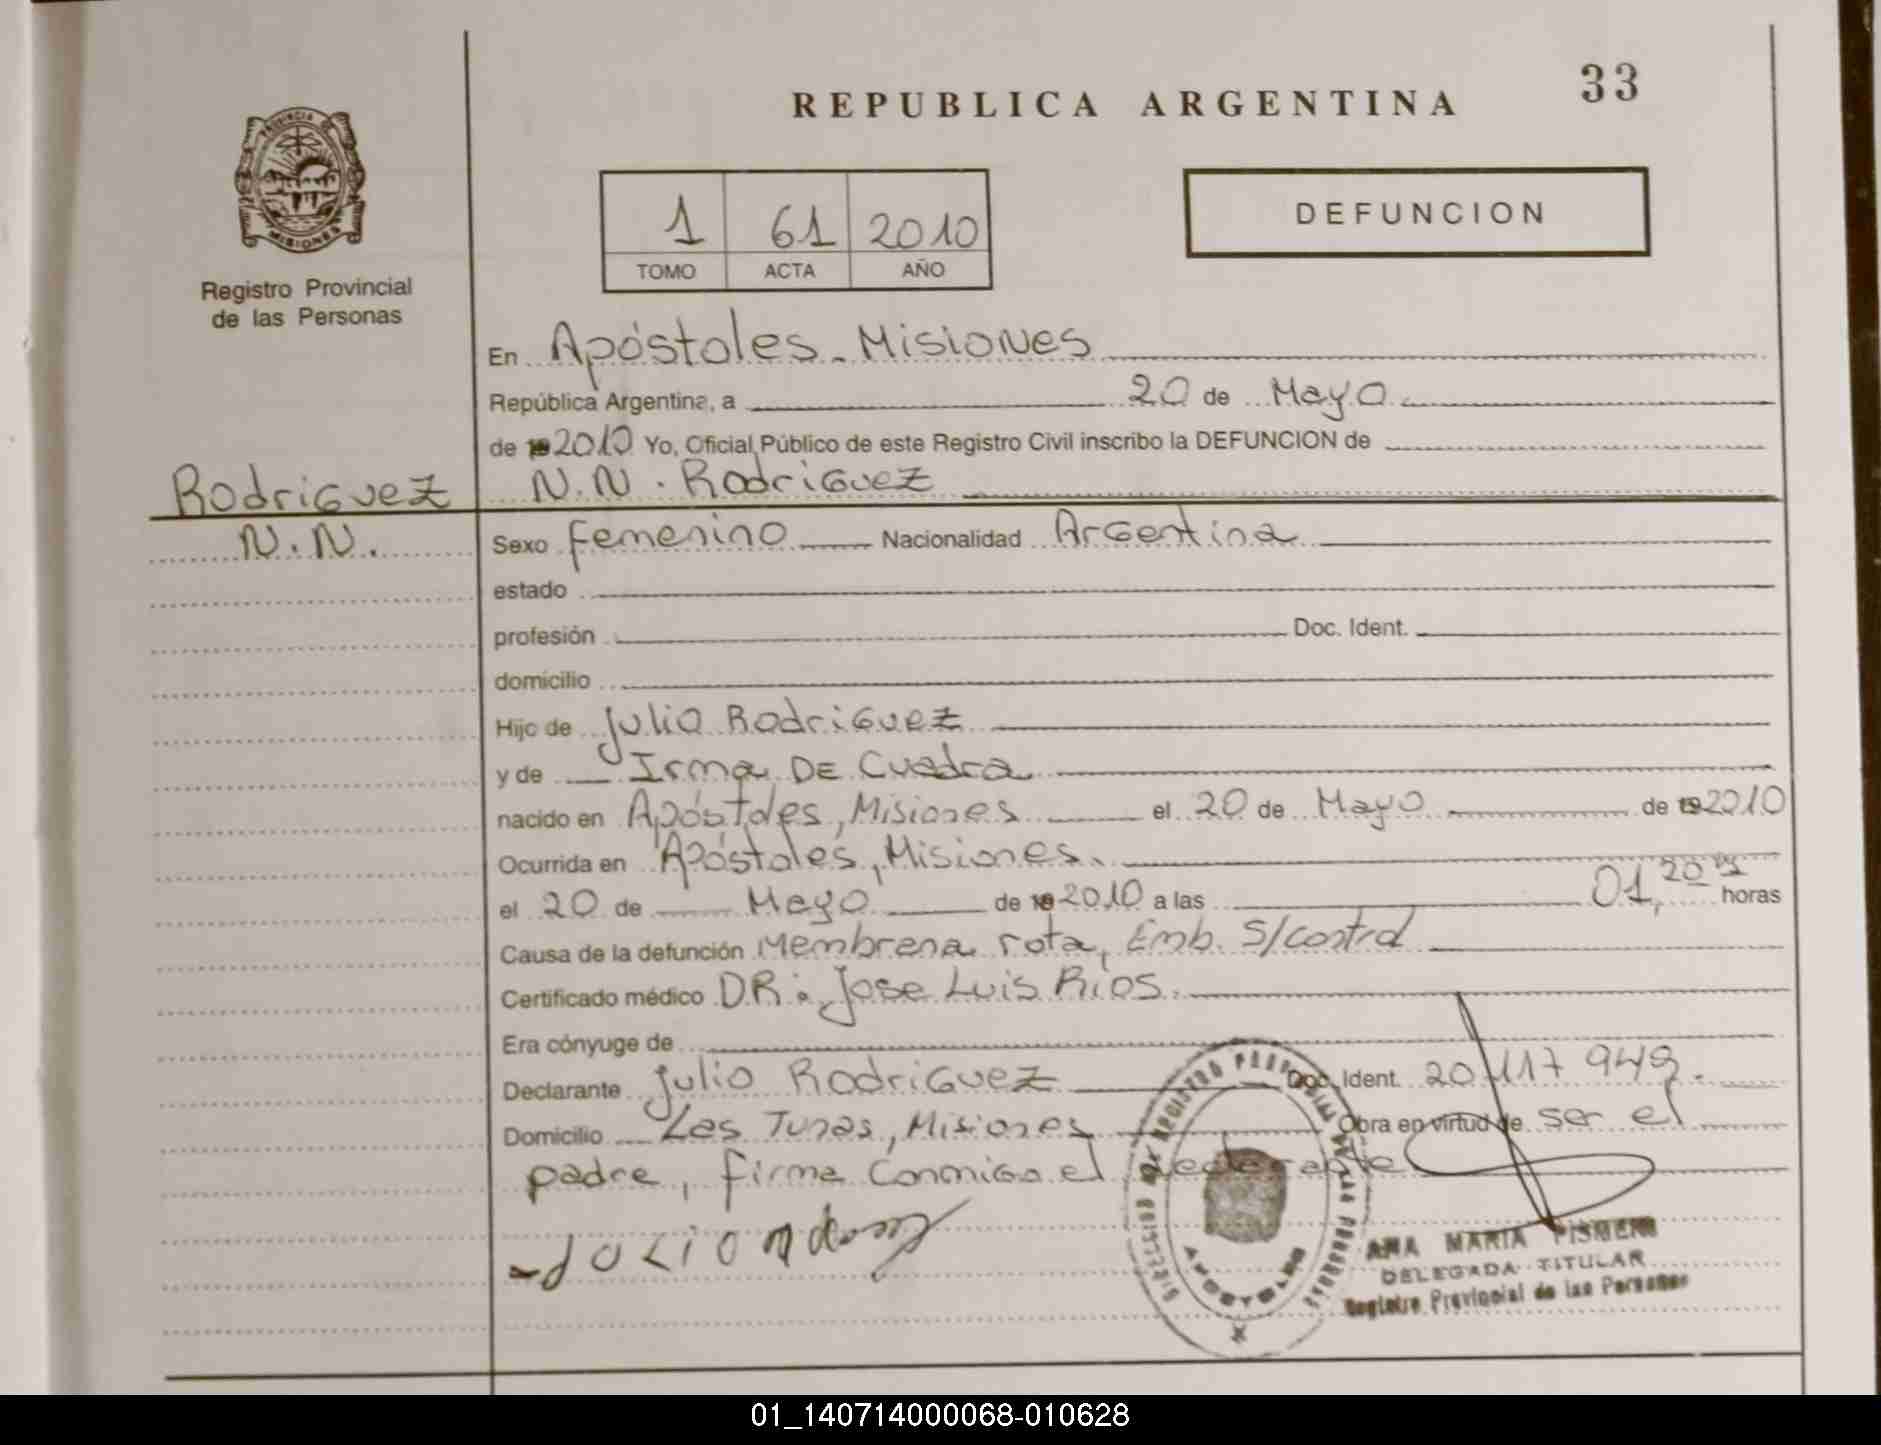 33
REPUBLICA ARGENTINA
PROVINCIA DE
MISIONES
Registro Provincial
de las Personas
1 61 2010
TOMO ACTA AÑO
DEFUNCION
En Apóstoles - Misiones
República Argentina, a 20 de Mayo
de 192010 Yo, Oficial Público de este Registro Civil inscribo la DEFUNCION de
Rodriguez
N.N.
N.N. Rodriguez
Sexo femenino Nacionalidad Argentina
estado
profesión Doc. Ident.
domicilio
Hijo de Julio Rodriguez
y de Irma De Cuadra
nacido en Apóstoles, Misiones el 20 de Mayo de 192010
Ocurrida en Apóstoles, Misiones.
el 20 de Mayo de 192010 a las 01,20 horas
Causa de la defunción Membrana rota, Emb. S/control
Certificado médico DR: Jose Luis Rios.
Era cónyuge de
Declarante Julio Rodriguez Doc. Ident. 20.117 949.
Domicilio Las Tunas, Misiones Obra en virtud de ser el
padre, firma conmigo el declarante
APOSTOLES
ANA MARIA PISMENI
DELEGADA TITULAR
Registro Provincial de las Personas
01_140714000068-010628